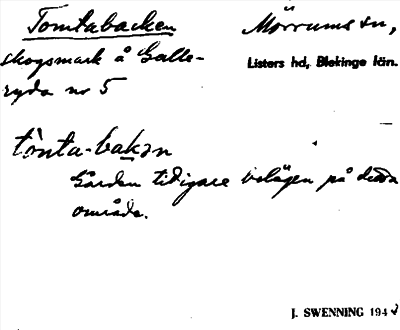 Tomtabacken Mörrums sn,
skogsmark å Galle- Listers hd, Blekinge län.
ryda nr 5
tònta-bakən
Gården tidigare belägen på detta
område.
J. SWENNING 194